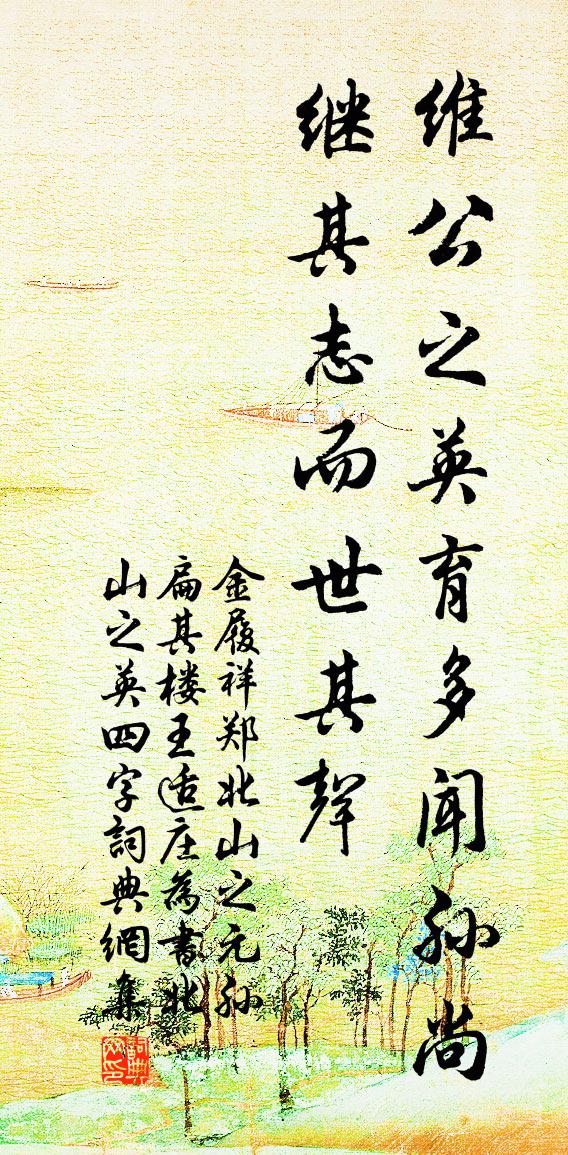 维公之英育多闻孙尚
继其志而世其声
金履祥郑北山之元孙
扁其楼王适庄为书北
山之英四字詞典網集
詞典